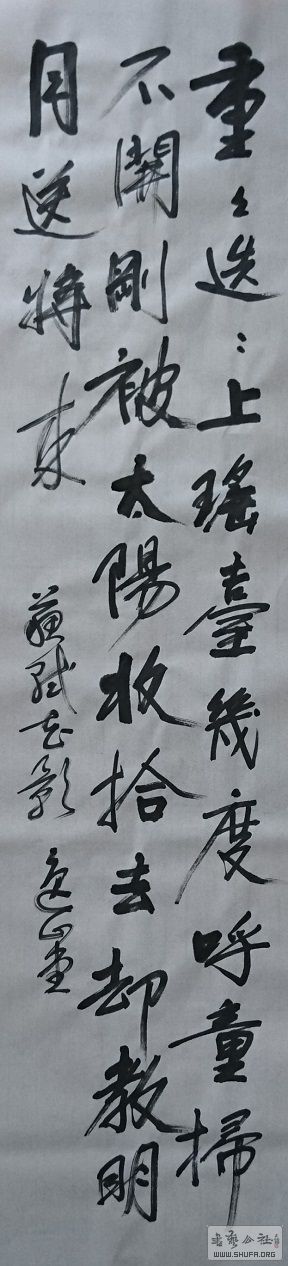 重々迭〻上瑤臺幾度呼童掃
不開剛被太陽收拾去却教明
月送將來
蘇軾花影
書藝公社
WWW.SHUFA.ORG